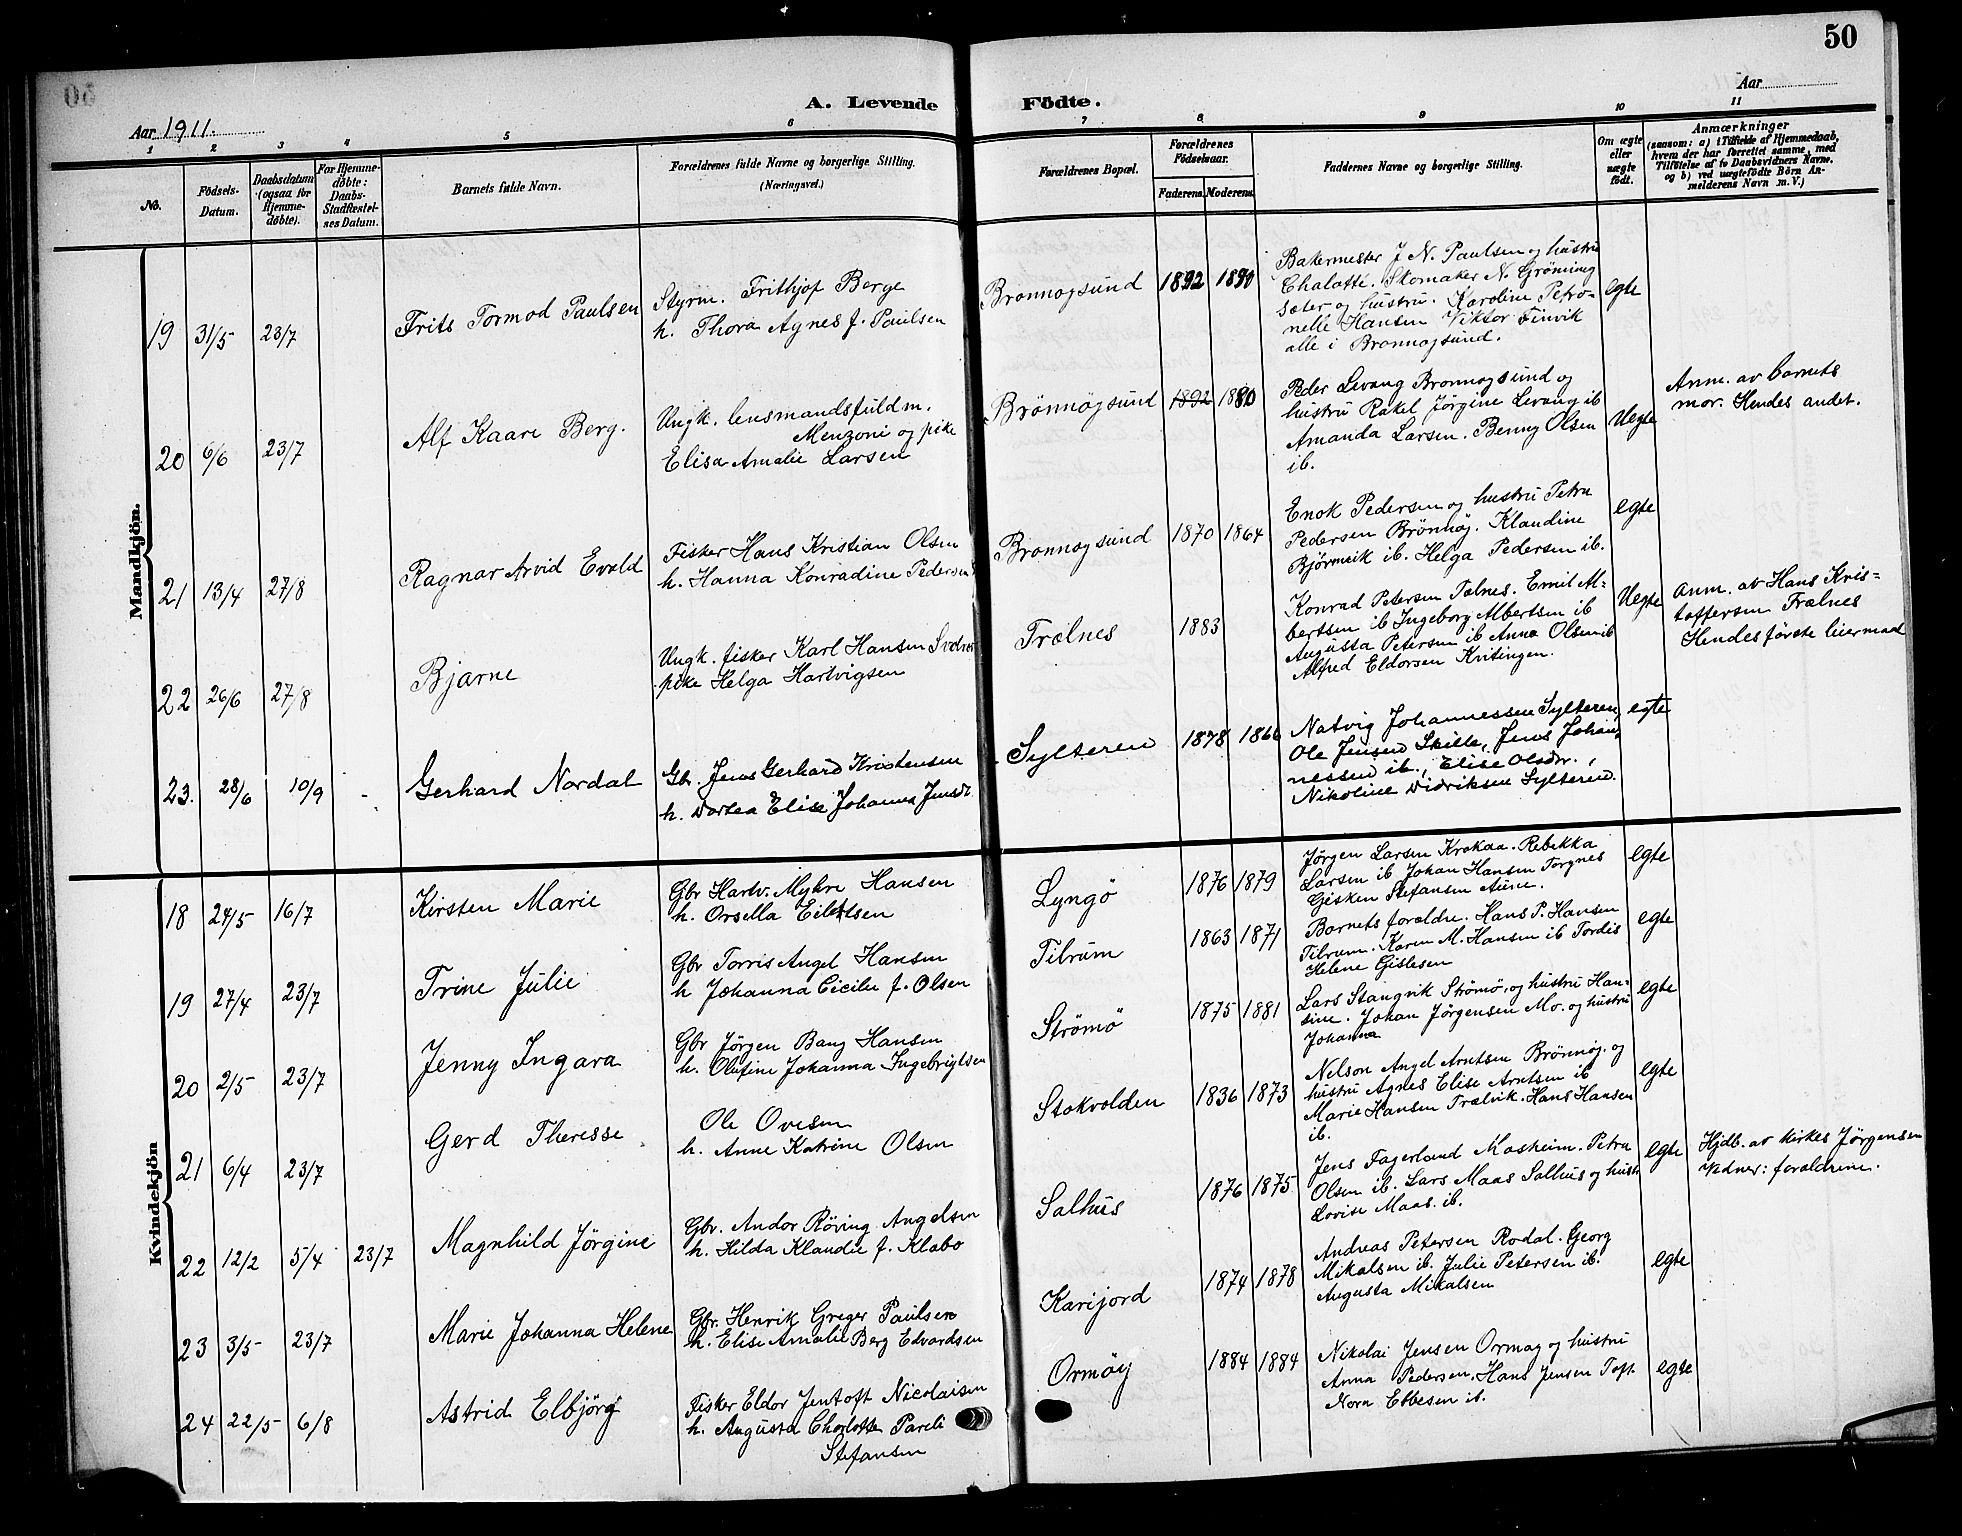 50
Aar 1911.
A. Levende Födte.
Aar
1 2 3 4 5 6 7 8 9 10 11
No.
Födsels-Datum.
Daabsdatum (ogsaa for Hjemmedøbte).
For Hjemmedøbte: Daabs-Stadfæstelses Datum.
Barnets fulde Navn.
Forældrenes fulde Navne og borgerlige Stilling.
(Næringsvei.)
Forældrenes Bopæl.
Forældrenes Födselsaar.
Faderens. Moderens.
Faddernes Navne og borgerlige Stilling.
Om ægte eller uægte født.
Anmærkninger
(saasom: a) i Tilfælde af Hjemmedaab, hvem der har forrettet samme, med Tilföielse af to Daabsvidners Navne. og b) ved uægtefödte Börn Anmelderens Navn m. V.)
Mandkjön.
19 31/5 23/7 Frits Tormod Paulsen
Styrm. Frithjof Berge
h. Thora Agnes f. Paulsen
Bronnøgsund 1892 1890
Bakermester J N. Paulsen og hustru
Chalotte. Skomaker N. Gröning
sæter og hustru. Karoline Petro-
nelle Hansen Viktor Finvik
alle i Bronnøgsund.
egte
20 6/6 23/7 Alf Kaare Berg.
Ungk. lensmandsfuldm.
Menzoni og pike
Elisa Amalie Larsen
Brönnøgsund 1892 1880
Peder Levang Bronnøgsund og
hustru Rakel Jørgine Levang ib
Amanda Larsen. Benny Olsen
ib.
Uegte
Anm. av barnets
mor. Hendes andet.
21 13/4 27/8 Ragnar Arvid Evald
Fisker Hans Kristian Olsen
h. Hanna Konradine Pedersen
Bronnøgsund 1870 1864
Enok Pedersen og hustru Petra
Pedersen Brönnøj. Klaudine
Bjørnvik ib. Helga Pedersen ib.
egte
22 26/6 27/8 Bjarne
Ungk. fisker Karl Hansen
pike Helga Hartvigsen
Trælnes 1883
Konrad Petersen Tælnes. Emil Al-
bertsen ib Ingeborg Albertsen ib
Augusta Petersen ib Anna Olsen ib
Alfred Eldorsen Kvitingen.
Uegte
Anm. av Hans Kris-
toffersen Trælnes
Hendes første leiermaal
23. 28/6 10/9 - Gerhard Nordal
Gb. Jens Gerhard Kristensen
h. Dortea Elise Johanna Jensdt.
Sylteren 1878 1866
Natvig Johannessen Sylteren,
Ole Jensen Skille, Jens Johan-
nessen ib., Elise Olsdr.,
Nikoline Didriksen Sylteren.
egte
Kvindekjön
18 24/5 16/7 Kirsten Marie
Gbr Hartv. Myhre Hansen
h. Orsella Eilertsen
Lyngö 1876 1879
Jørgen Larsen Krokaa. Rebekka
Larsen ib Johan Hansen Torgnes
Gisken Stefansen Aune.
egte
19 27/4 23/7 Trine Julie
Gbr Torris Angel Hansen
h Johanna Cicilie f. Olsen
Tilrum 1863 1871
Barnets forældre. Hans P. Hansen
Tilrum. Karen M. Hansen ib Tordis
Helene Gislesen
egte
20 2/5 23/7 Jenny Ingara
Gbr Jørgen Bang Hansen
h. Olufine Johanna Ingebrigtsen
Strömö 1875 1881
Lars Stangvik Strömö, og hustru Han-
sine. Johan Jørgensen Mo. og hustru
Johanna
egte
21 6/4 23/7 Gerd Theresse
Ole Ovesen
h. Anne Katrine Olsen
Stokvolden 1836 1873
Nelson Angel Arntsen Brönnøj. og
hustru Agnes Elise Arntsen ib
Marie Hansen Trælvik. Hans Hansen
ib.
egte
22 12/2 5/4 23/7 Magnhild Jörgine
Gbr. Andor Röving Angelsen
h. Hilda Klaudie f. Klabo
Salhus 1876 1875
Jens Fagerland Mosheim. Petra
Olsen ib. Lars Maas Salhus og hustr
Lovise Maas. ib.
egte
Hjdb. av kirkes Jörgensen
Vidner: forældrene.
23 3/5 23/7 Marie Johanna Helene
Gbr. Henrik Greger Paulsen
h. Elise Amalie Berg Edvardsen
Karijord 1874 1878
Andreas Petersen Rodal. Georg
Mikalsen ib. Julie Petersen ib.
Augusta Mikalsen
egte
24 22/5 6/8 Astrid Elbjörg
Fisker Eldor Jentoft Nicolaisen
h. Augusta Charlotte Pareli
Stefansen
Ormöy 1884 1884
Nikolai Jensen Ormøy og hustru
Anna Pedersen. Hans Jensen Toft
Nora Ebbesen ib.
egte